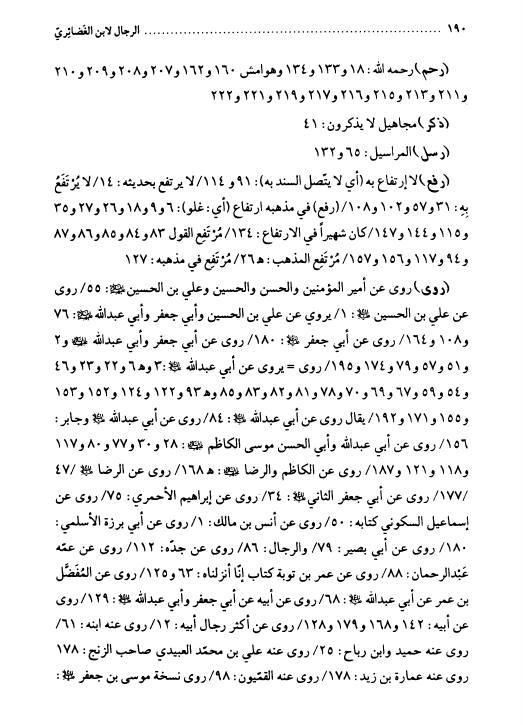 ١٩٠ ........................................ الرجال لابن الغَضائِريّ
(رحم) رحمه الله: ١٨ و١٣٣ و١٣٤ وهوامش ١٦٠ و١٦٢ و٢٠٧ و٢٠٨ و٢٠٩ و٢١٠
و٢١١ و٢١٣ و٢١٥ و٢١٦ و٢١٧ و٢١٩ و٢٢١ و٢٢٢
(ذكر) مجاهيل لا يذكرون: ٤١
(رسل) المراسيل: ٦٥ و١٣٢
(رفع) لا إرتفاع به (أي لا يتّصل السند به): ٩١ و١١٤/ لا يرتفع بحديثه: ١٤/ لا يُرْتَفَعُ
بِهِ: ٣١ و٥٧ و١٠٢ و١٠٨/ (رفع) في مذهبه ارتفاع (أي: غلو): ٦ و٩ و١٨ و٢٦ و٢٧ و٣٥
و١١٥ و١٤٤ و١٤٧/ كان شهيراً في الارتفاع: ١٣٤/ مُرْتَفِع القول ٨٣ و٨٤ و٨٥ و٨٦ و٨٧
و٩٤ و١١٧ و١٥٦ و١٥٧/ مُرْتَفِع المذهب: ه ٢٦/ مُرْتَفِع في مذهبه: ١٢٧
(روى) روى عن أمير المؤمنين والحسن والحسين وعلي بن الحسين: ٥٥/ روى
عن علي بن الحسين: ١/ يروي عن علي بن الحسين وأبي جعفر وأبي عبدالله: ٧٦
و١٠٨ و١٦٤/ روى عن أبي جعفر: ١٨٠/ روى عن أبي جعفر وأبي عبدالله و٢
و٥١ و٥٧ و٧٩ و١٧٤ و١٩٥/ روى = يروى عن أبي عبدالله: ٣ و ه ٦ و٢٢ و٢٣ و٤٦
و٥٤ و٥٩ و٦٧ و٦٩ و٧٠ و٧٨ و٨١ و٨٢ و٨٣ و٨٥ و ه ٩٣ و١٢٢ و١٢٤ و١٥٢ و١٥٣
و١٥٥ و١٧١ و١٩٢/ يقال روى عن أبي عبدالله: ٨٤/ روى عن أبي عبدالله وجابر:
١٥٦/ روى عن أبي عبدالله وأبي الحسن موسى الكاظم: ٢٨ و٣٠ و٧٧ و٨٠ و١١٧
و١١٨ و١٢١ و١٨٧/ روى عن الكاظم والرضا: ه ١٦٨/ روى عن الرضا /٤٧
/١٧٧/ روى عن أبي جعفر الثاني: ٣٤/ روى عن إبراهيم الأحمري: ٧٥/ روى عن
إسماعيل السكوني كتابه: ٥٠/ روى عن أنس بن مالك: ١/ روى عن أبي برزة الأسلمي:
١٨٠/ روى عن أبي بصير: ٧٩/ والرجال: ٨٦/ روى عن جدّه: ١١٢/ روى عن عمّه
عَبْدالرحمان: ٨٨/ روى عن عمر بن توبة كتاب إنّا أنزلناه: ٦٣ و١٢٥/ روى عن المُفَضَّل
بن عمر عن أبي عبدالله: ٦٨/ روى عن أبيه عن أبي جعفر وأبي عبدالله: ١٢٩/ روى
عن أبيه: ١٤٢ و١٦٨ و١٧٩ و١٢٨/ روى عن أكثر رجال أبيه: ١٢/ روى عنه ابنه: ٦١/
روى عنه حميد وابن رباح: ٢٥/ روى عنه علي بن محمّد العبيدي صاحب الزنج: ١٧٨
روى عنه عمارة بن زيد: ١٧٨/ روى عنه القمّيون: ٩٨/ روى نسخة موسى بن جعفر: